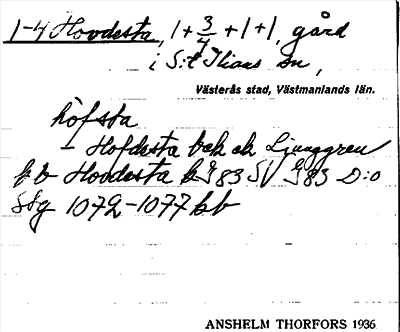 1-4 Hovdesta, 1+3/4+1+1, gård
i S:t Ilians sn,
Västerås stad, Västmanlands län.
hòfsta
- Hofdesta bch ch Ljunggren
bb Hovdesta GS 83 SV 83 D:o
Ssg 1072-1077 bb
ANSHELM THORFORS 1936